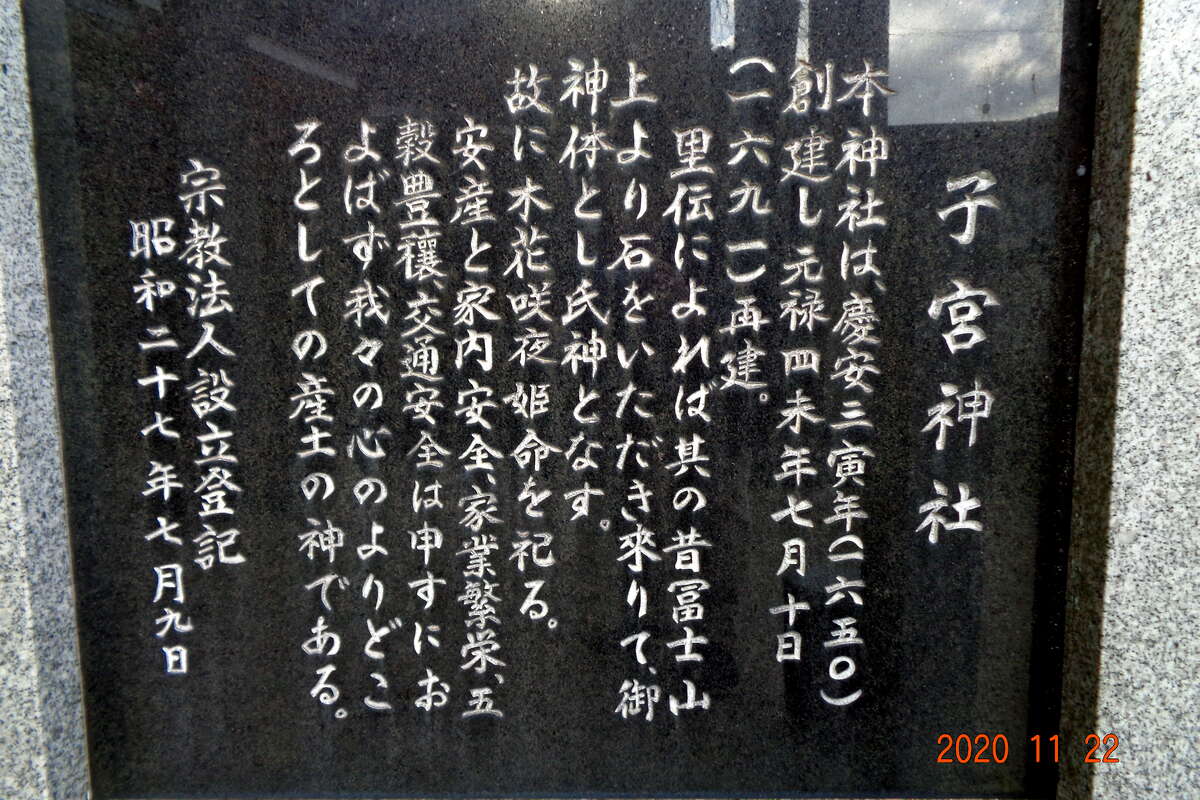 子宮神社
本神社は、慶安三寅年（一六五〇）
創建し元禄四未年七月十日
（一六九一）再建。
里伝によれば其の昔冨士山
上より石をいただき來りて、御
神体とし氏神となす。
故に木花咲夜姫命を祀る。
安産と家内安全、家業繁栄、五
穀豊穰、交通安全は申すにお
よばず我々の心のよりどこ
ろとしての産土の神である。
宗教法人設立登記
昭和二十七年七月九日
2020 11 22